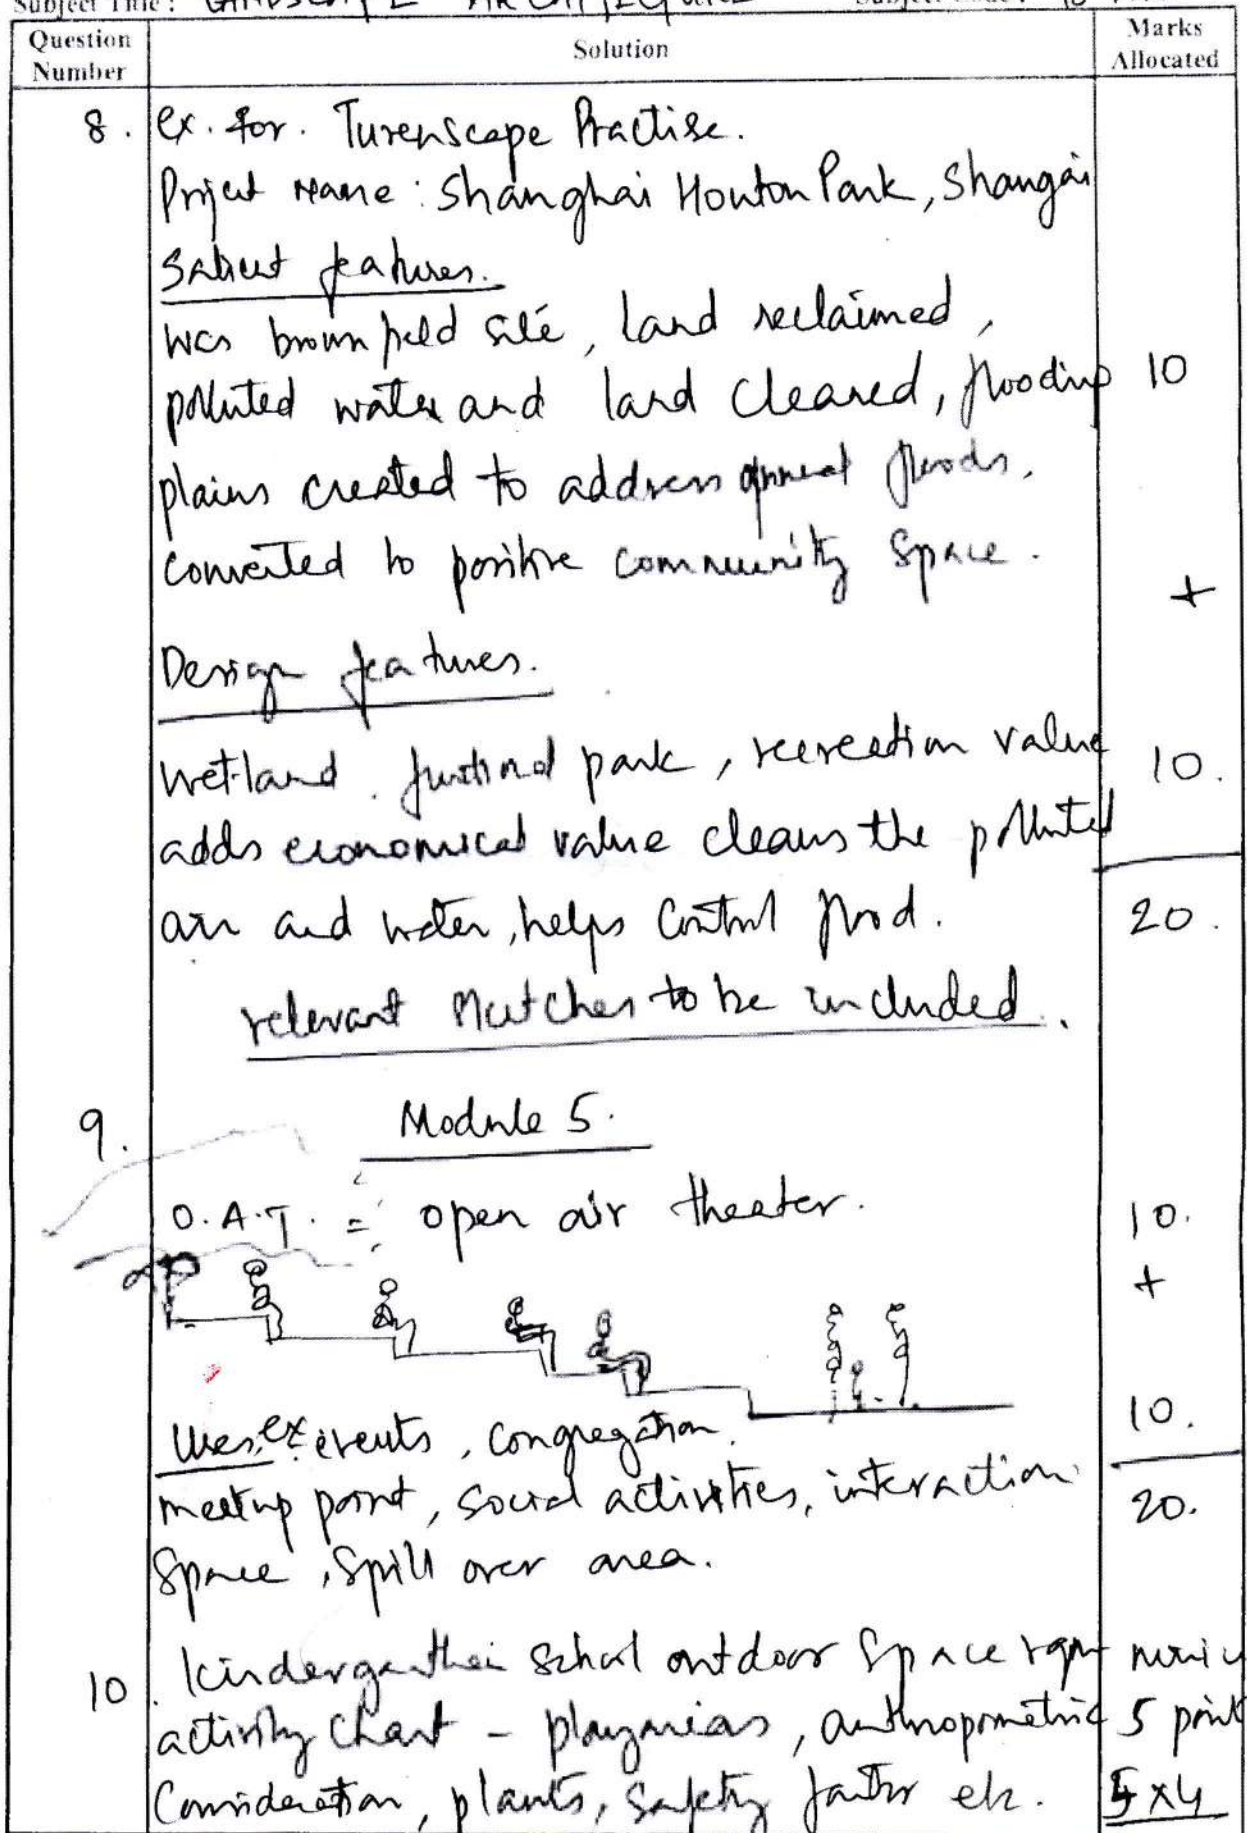 Subject Title : LANDSCAPE ARCHITECTURE
Question Number Solution Marks Allocated
8. ex. for. Turenscape Practise.
Projet Name : Shanghai Houton Park, Shangai
Salient features.
was brown field site, land reclaimed,
polluted water and land cleared, flooding 10
plains created to address annual floods.
converted to positive community space.
+
Design features.
wetland. funtional park, recreation value 10.
adds economical value cleans the polluted
air and water, helps control flood. 20.
relevant sketches to be included.
9. Module 5.
O.A.T. = open air theater. 10.
+
Uses, ex. events, congregation. 10.
meetup point, social activities, interaction 20.
space, spill over area.
10. kindergarthen school outdoor space rqmt
activity chart - playareas, anthropometric 5 point
consideration, plants, safety factor etc. 5x4